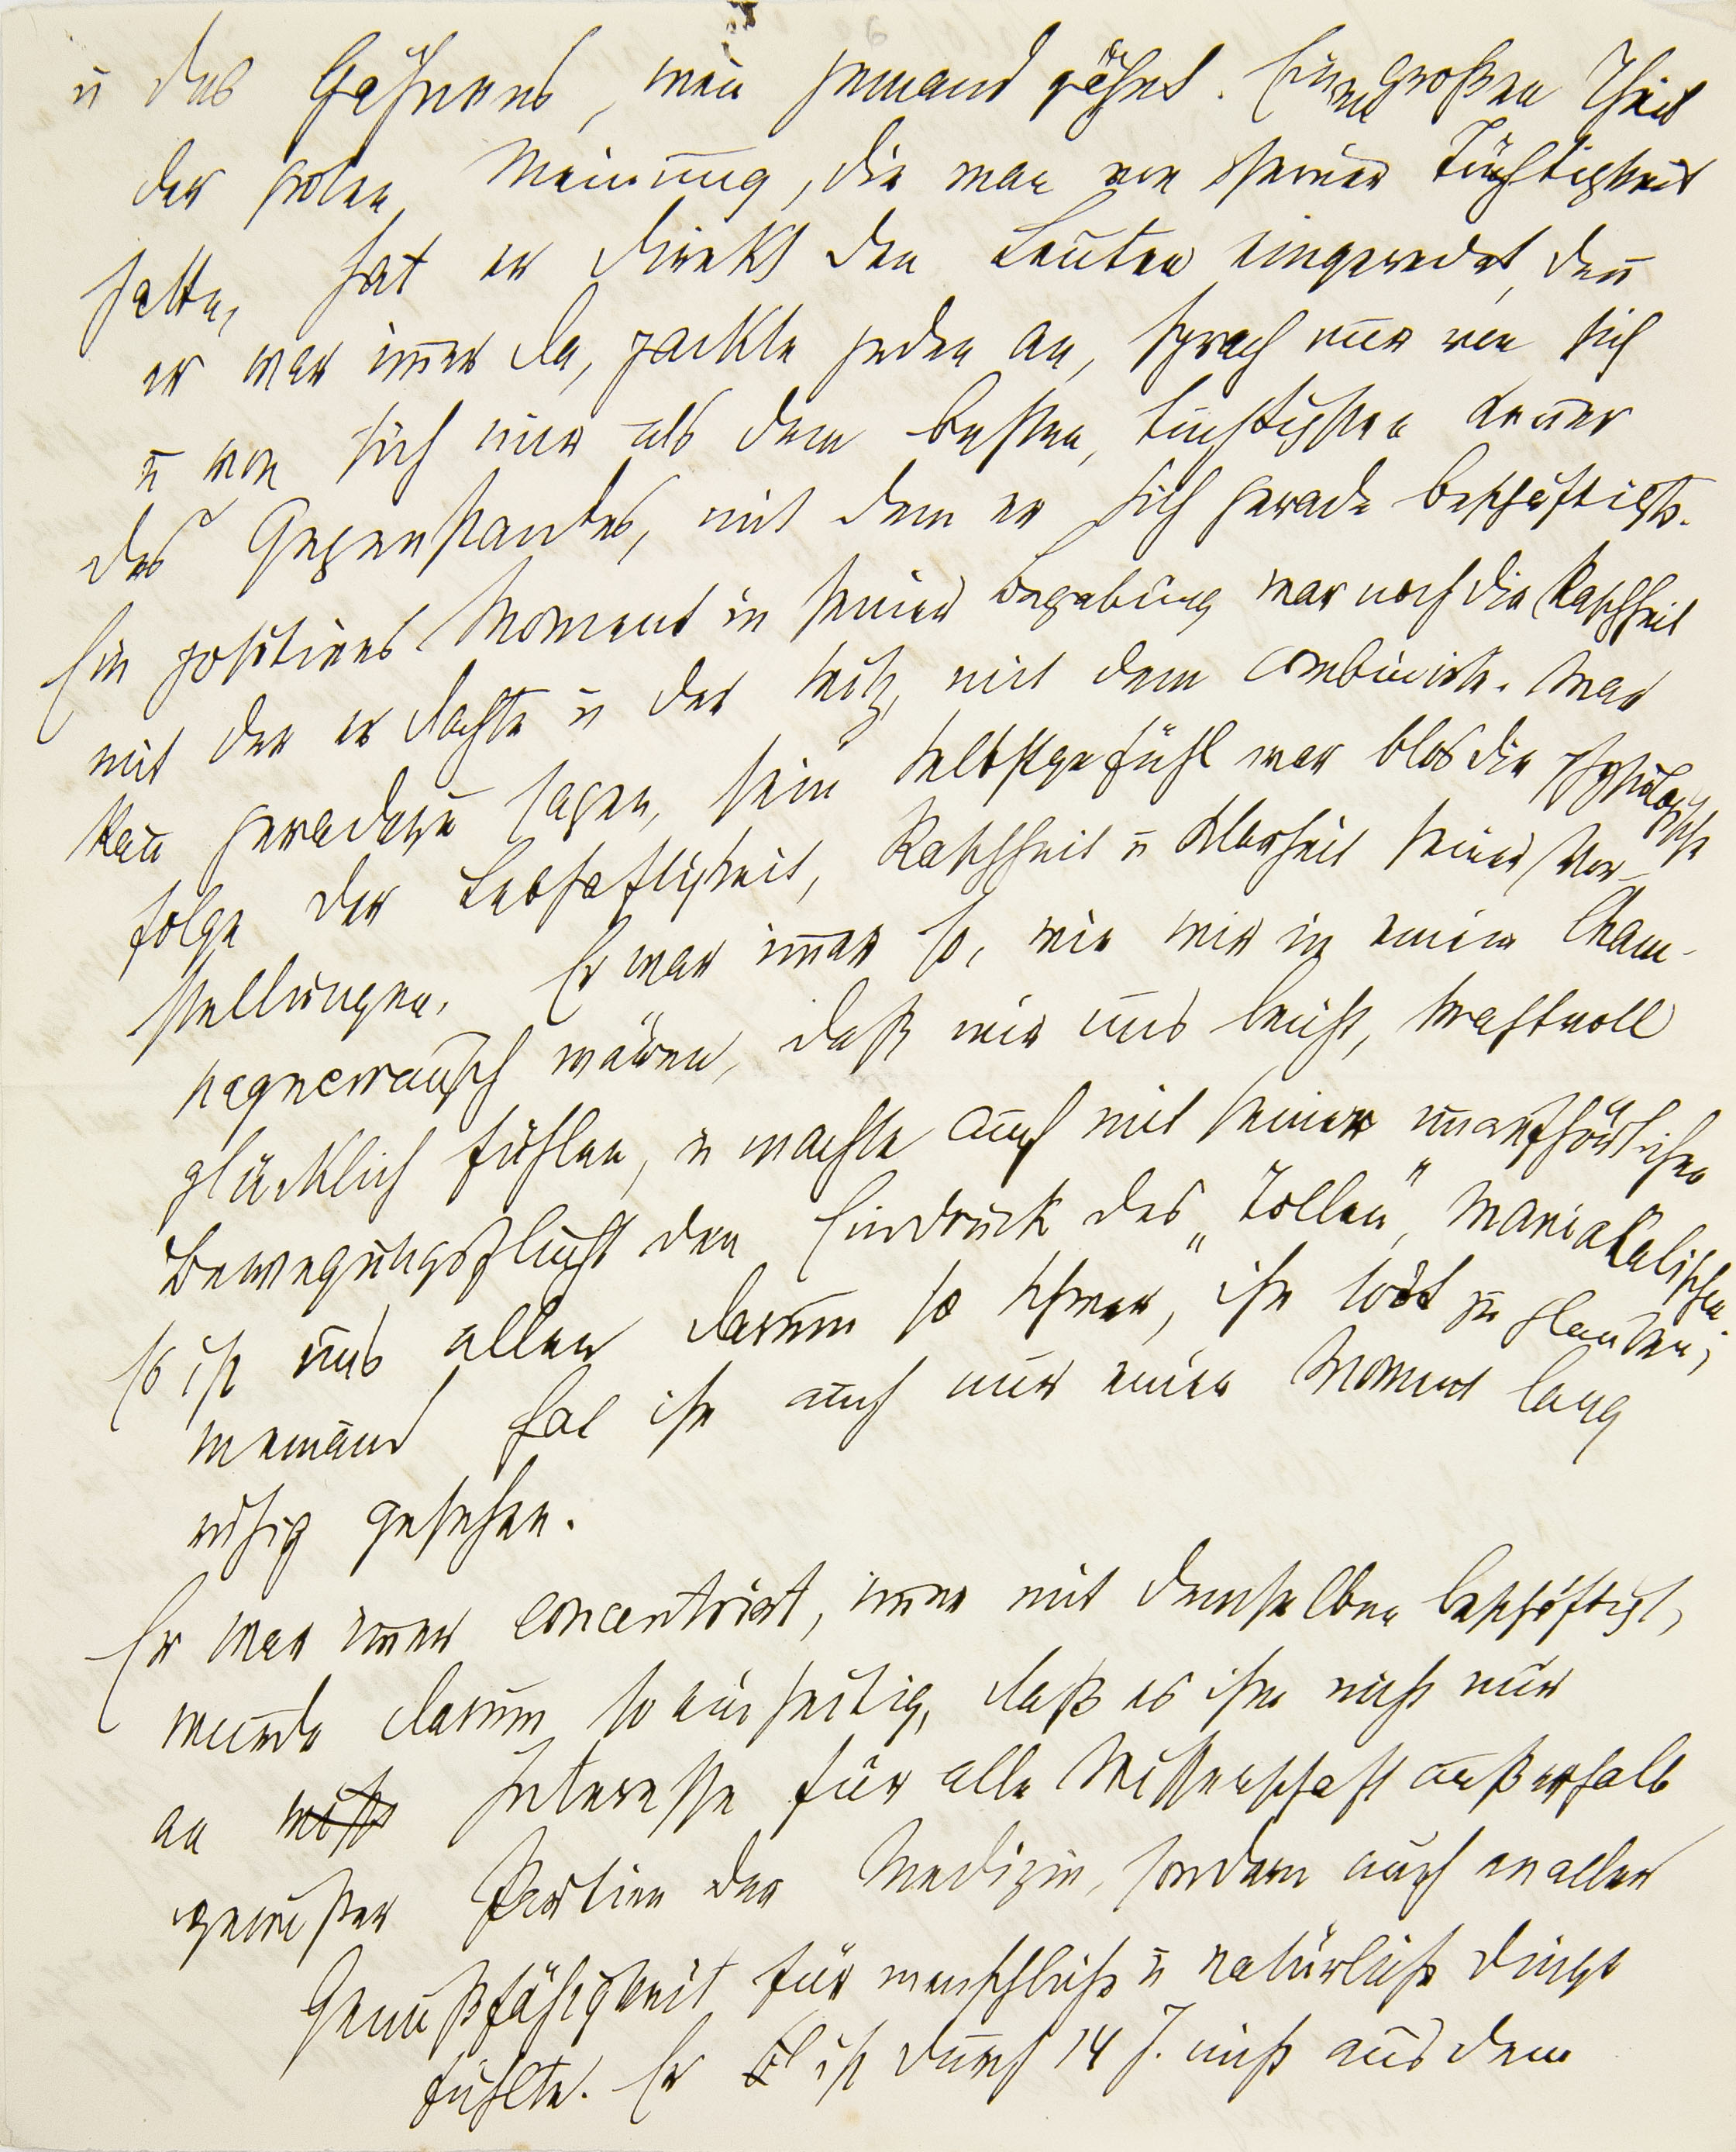 u des Gähnens, weñ jemand gähnt. Einen großen Theil
der hohen Meinung, die man von seiner Tüchtigkeit
hatte, hat er direkt den Leuten eingeredet, deñ
er war im̄er da, packte jeden an, sprach nur von sich
u von sich nur als dem besten, tüchtigsten Keñer
des Gegenstandes, mit dem er sich gerade beschäftigte.
Ein positives Moment in seiner Begabung war noch die Raschheit
mit der er dachte u der Witz, mit dem combinirte. Man
kañ geradezu sagen, sein Selbstgefühl war blos die psychologische
Folge der Lebhaftigkeit, Raschheit u Klarheit seiner Vor-
stellungen. Er war im̄er so, wie wir in einem Cham-
pagnerrausch wären, daß wir uns leicht, kraftvoll
glücklich fühlen, u machte auch mit seiner unaufhörlichen
Bewegungsflucht den Eindruck des „Tollen“, Maniakalischen.
Es ist uns allen darum so schwer, ihn todt zu glauben;
niemand hat ihn auch nur einen Moment lang
ruhig gesehen.
Er war im̄er concentrirt, im̄er mit demselben beschäftigt,
wurde darum so einseitig, daß es ihm nicht nur
an Interesse für alle Wissenschaft außerhalb
gewisser Partien der Medizin, sondern auch an aller
Genußfähigkeit für menschliche u natürliche Dinge
fehlte. Er ist durch 14 J. nicht aus dem